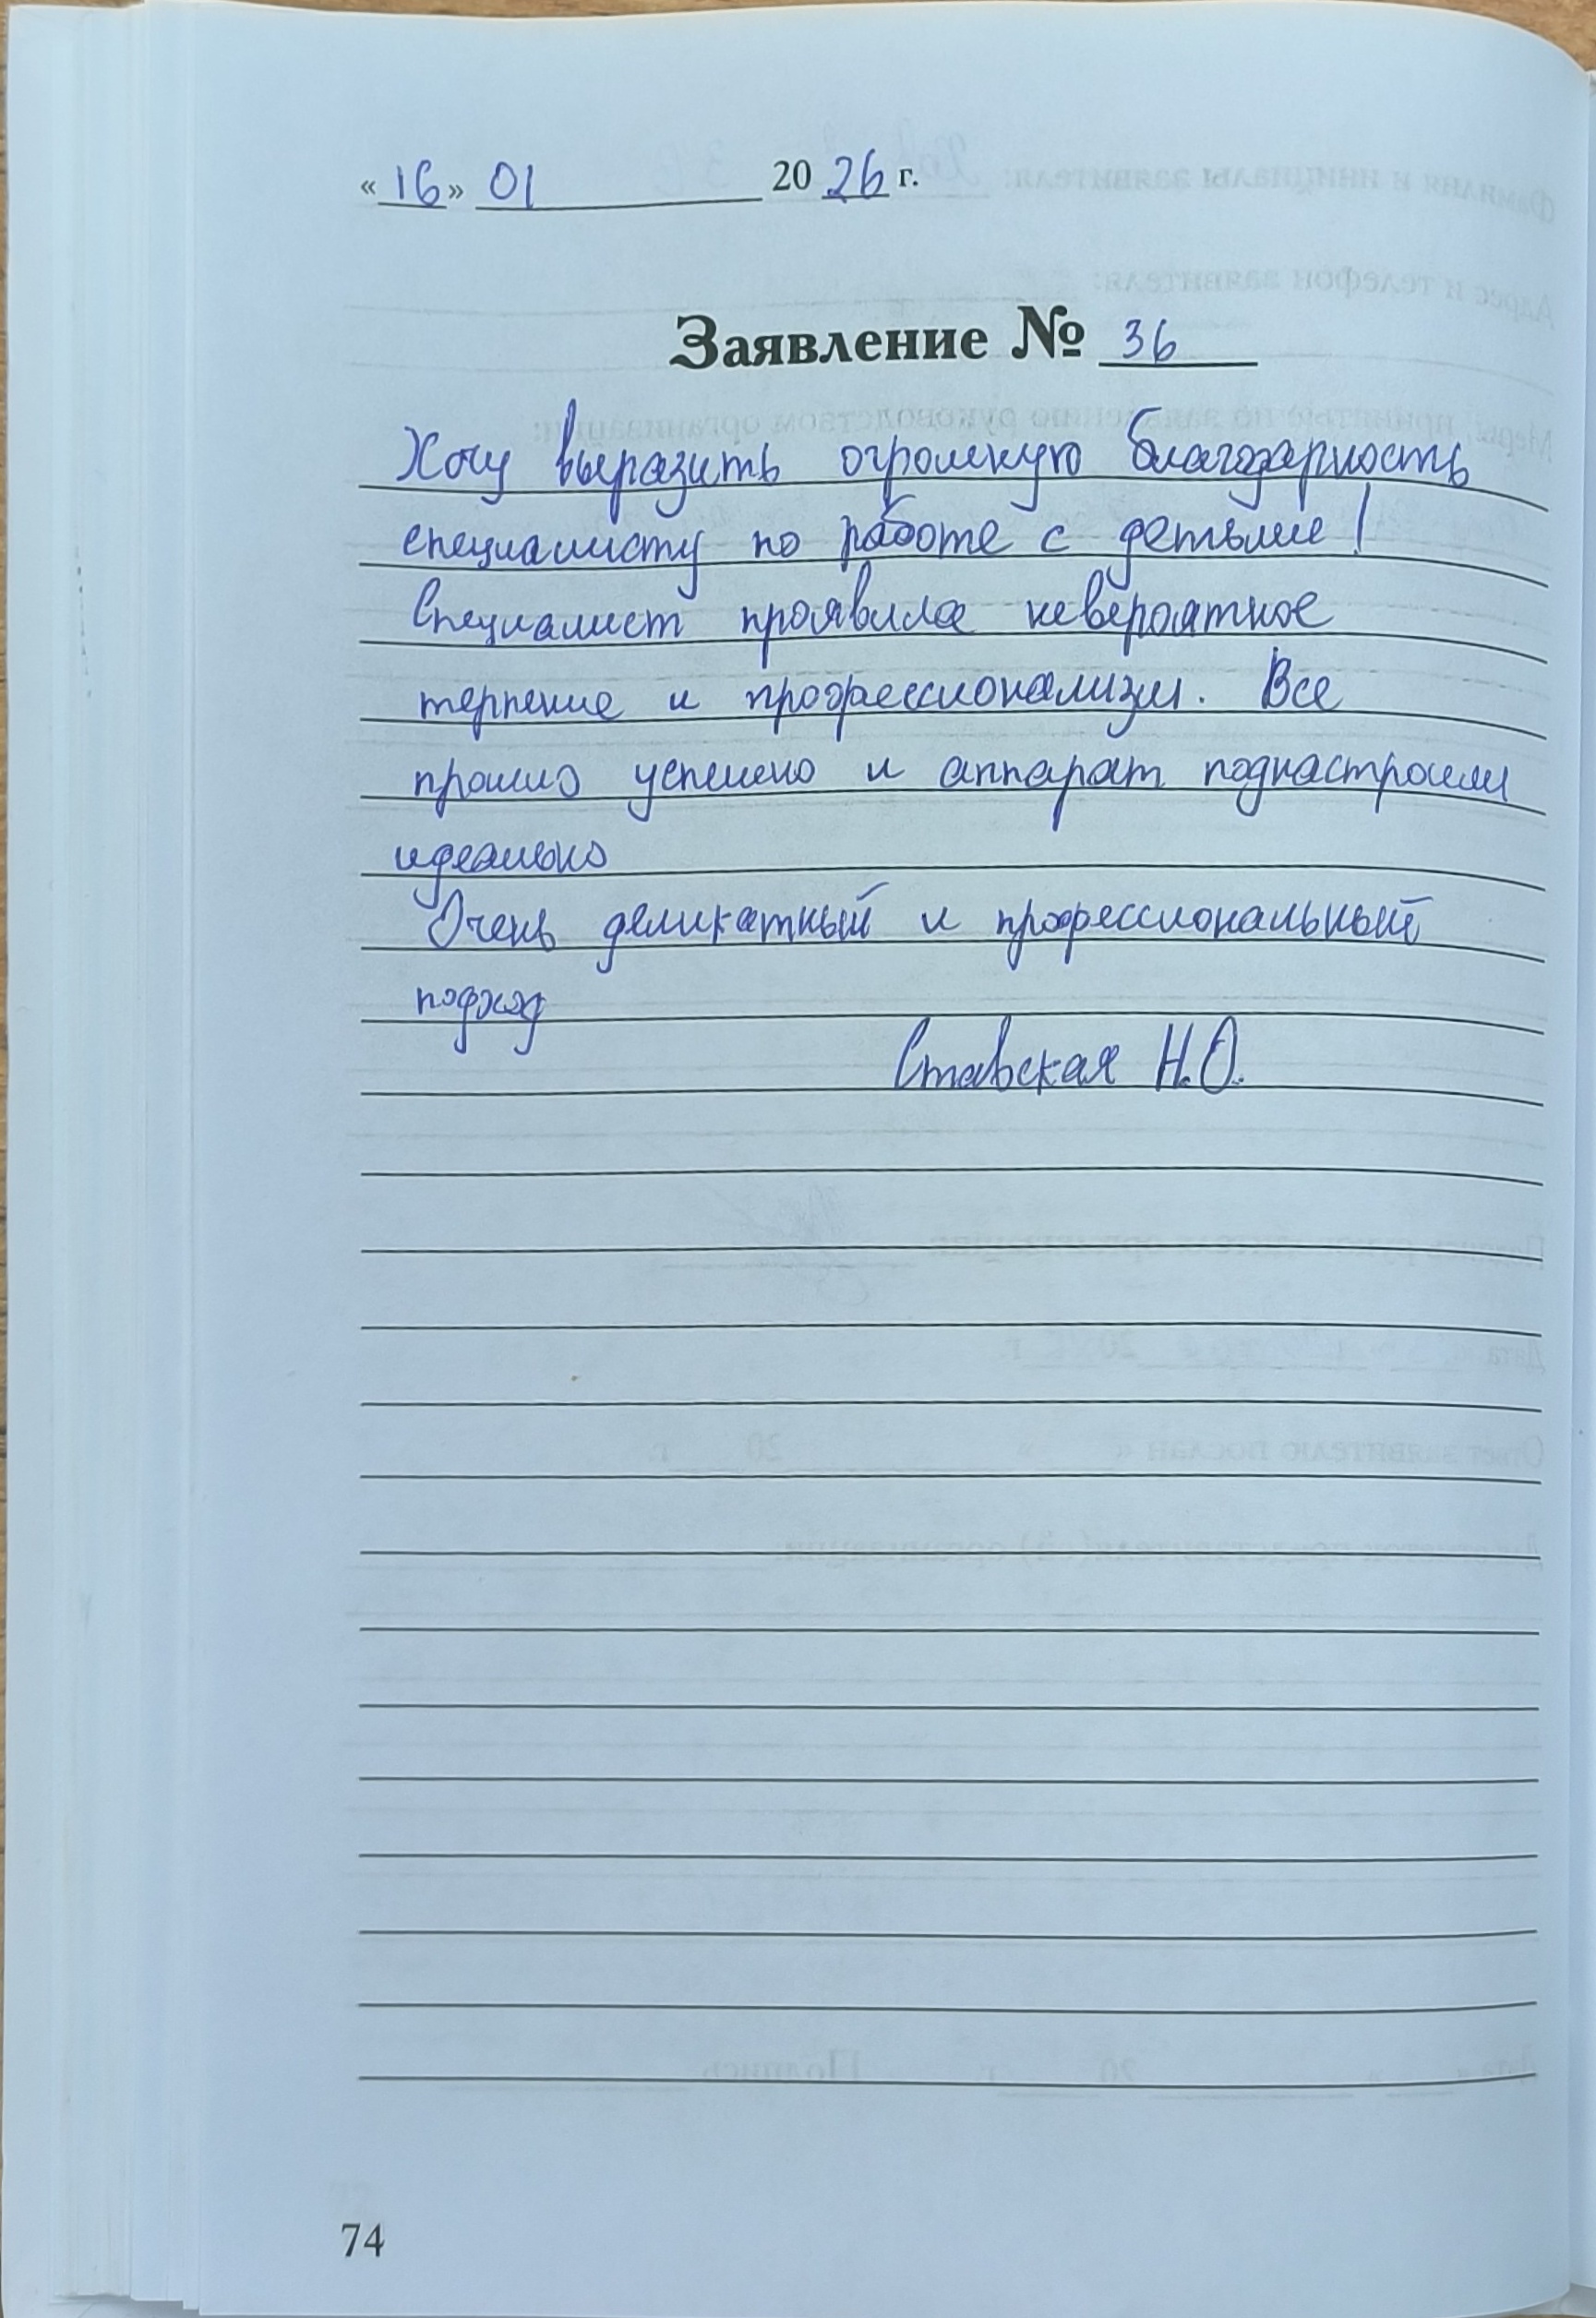 «16» 01 2026 г.
Заявление № 36
Хочу выразить огромную благодарность
специалисту по работе с детьми!
Специалист проявила невероятное
терпение и профессионализм. Все
прошло успешно и аппарат поднастроили
идеально
Очень деликатный и профессиональный
подход
Ставская Н.О.
74